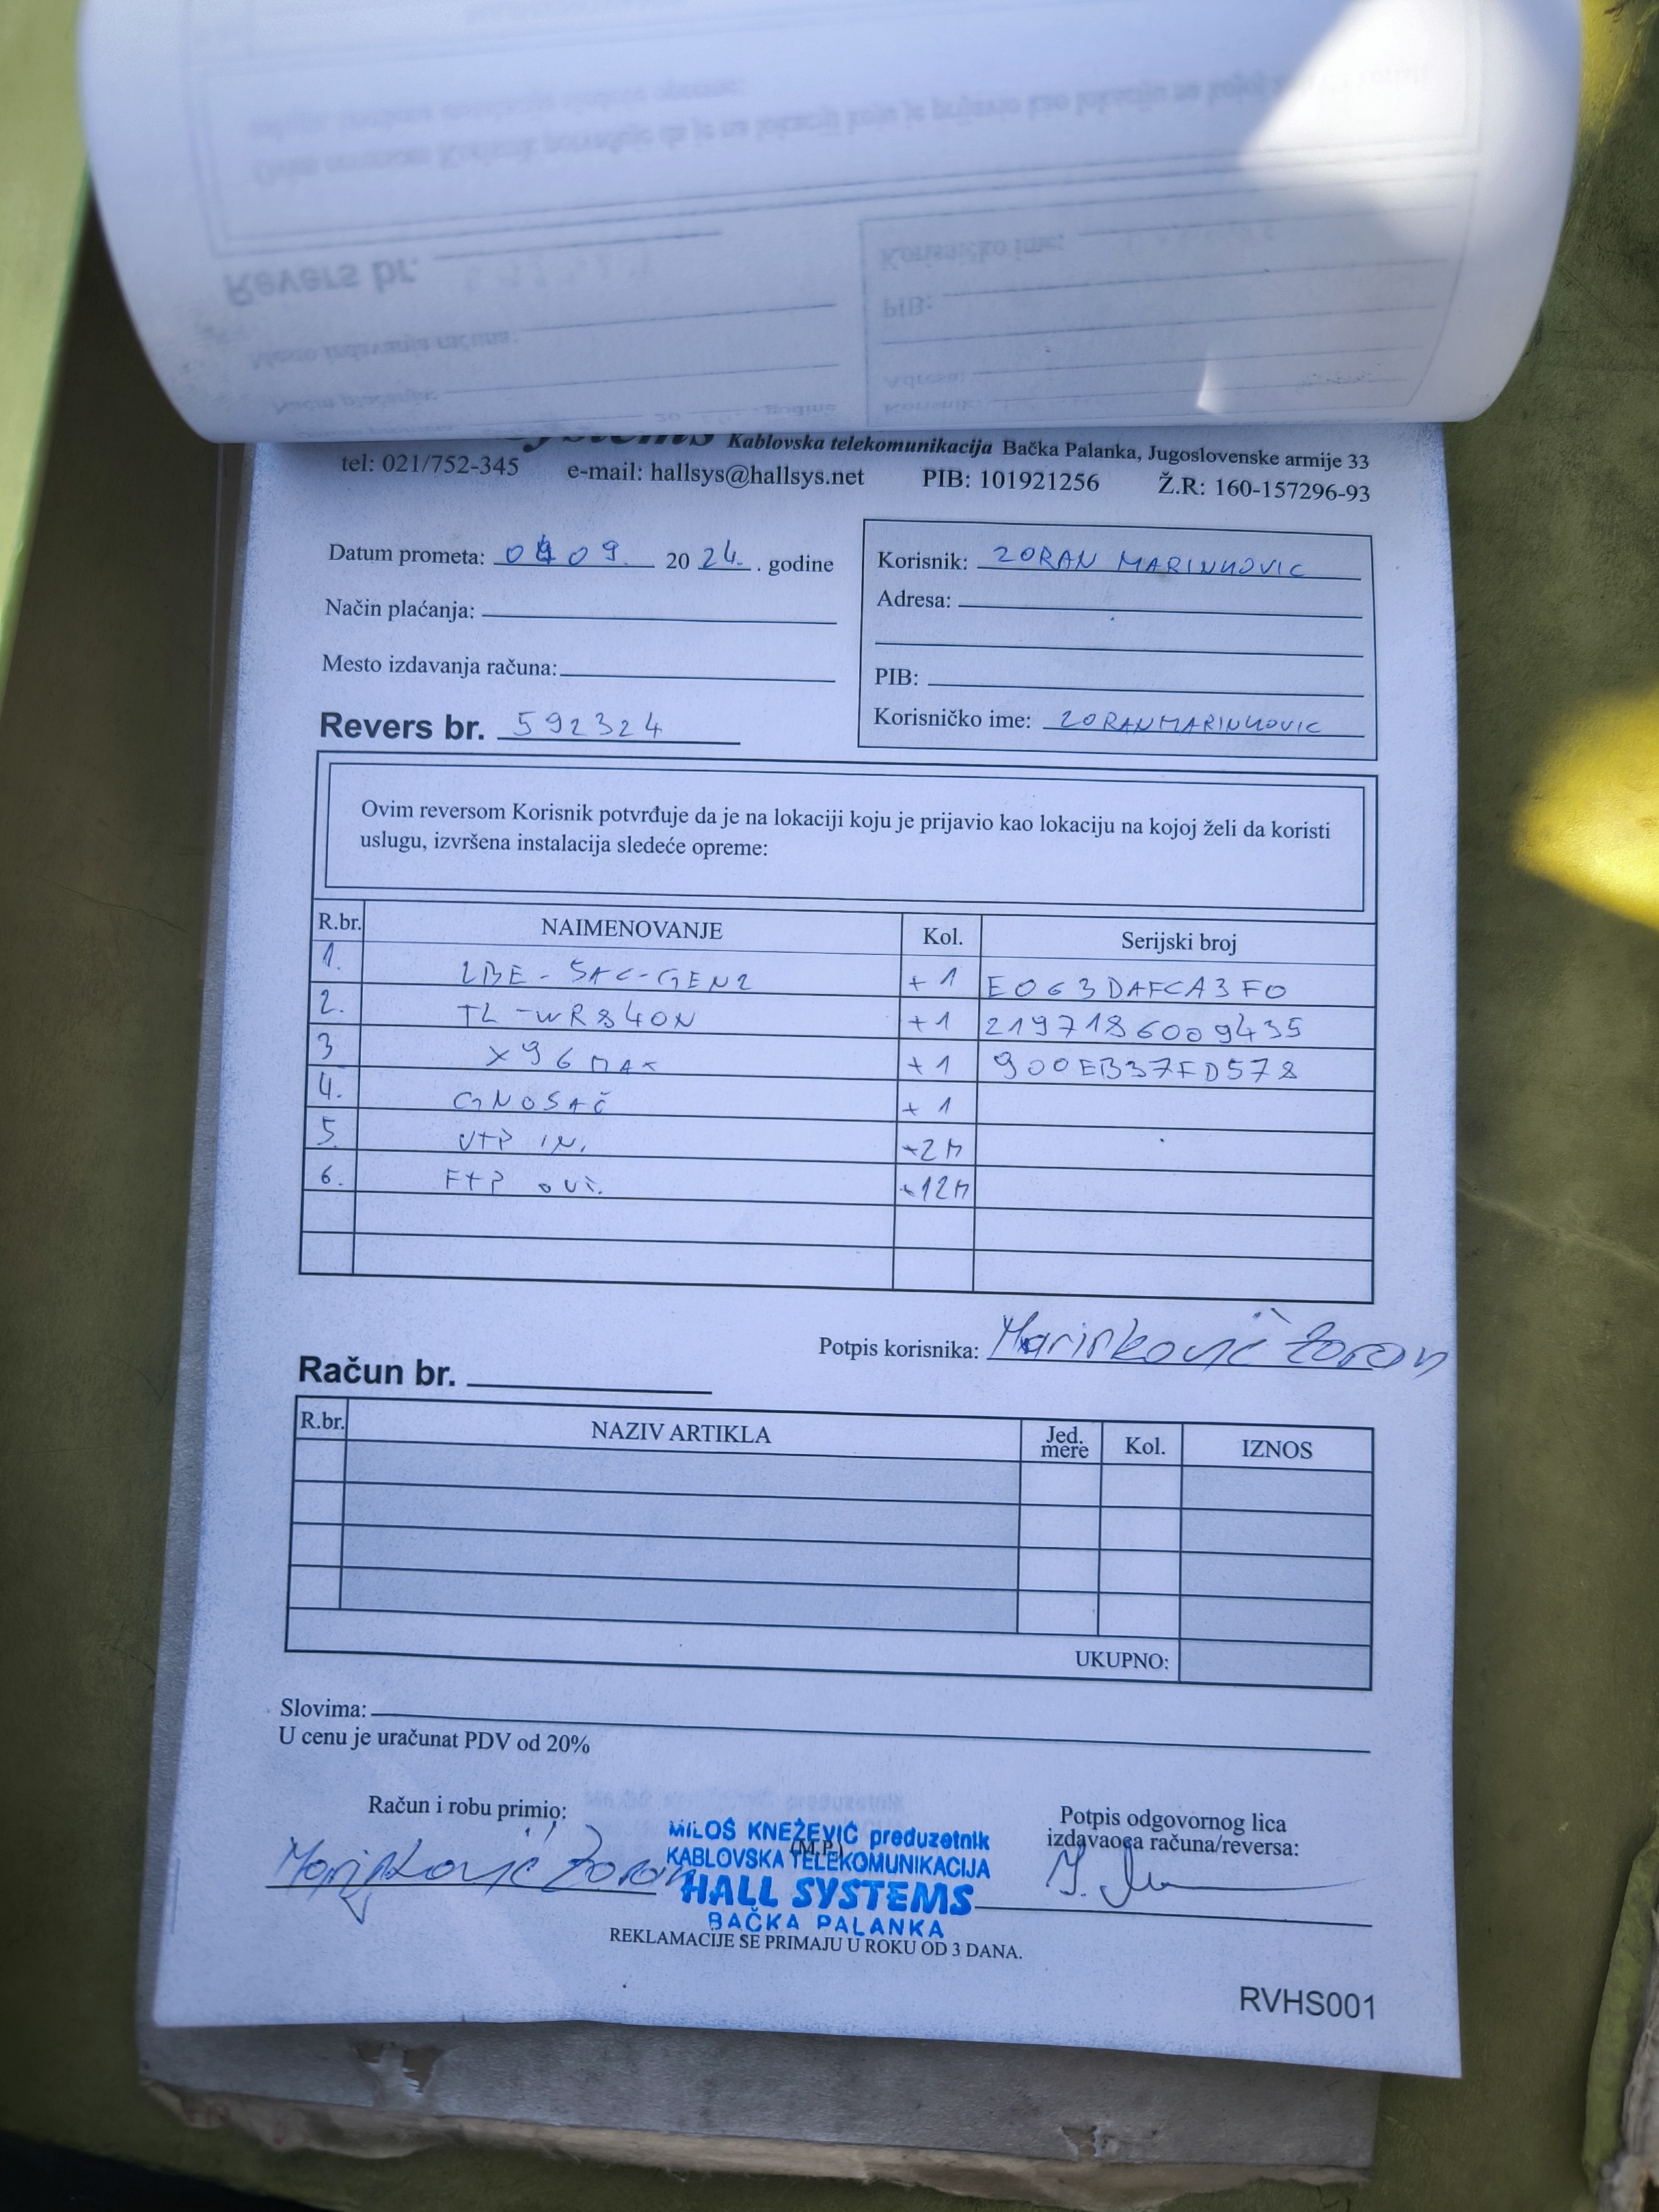 Systems Kablovska telekomunikacija Bačka Palanka, Jugoslovenske armije 33
tel: 021/752-345 e-mail: hallsys@hallsys.net PIB: 101921256 Ž.R: 160-157296-93
Datum prometa: 09. 2024. godine
Način plaćanja:
Mesto izdavanja računa:
Revers br. 592324
Korisnik: ZORAN MARINKOVIC
Adresa:
PIB:
Korisničko ime: ZORANMARINKOVIC
Ovim reversom Korisnik potvrđuje da je na lokaciji koju je prijavio kao lokaciju na kojoj želi da koristi
uslugu, izvršena instalacija sledeće opreme:
R.br. NAIMENOVANJE Kol. Serijski broj
1. LBE-5AC-GEN2 +1 E063DAFCA3F0
2. TL-WR840N +1 2197186009435
3 X96 MAX +1 900EB37FD578
4. GNOSAČ +1
5. UTP IN. +2M
6. FTP +12M
Potpis korisnika: Marinković Zoran
Račun br.
R.br. NAZIV ARTIKLA Jed. mere Kol. IZNOS
UKUPNO:
Slovima:
U cenu je uračunat PDV od 20%
Račun i robu primio:
Marinković Zoran
MILOŠ KNEŽEVIĆ preduzetnik
(M.P.)
KABLOVSKA TELEKOMUNIKACIJA
HALL SYSTEMS
BAČKA PALANKA
Potpis odgovornog lica
izdavaoca računa/reversa:
REKLAMACIJE SE PRIMAJU U ROKU OD 3 DANA.
RVHS001